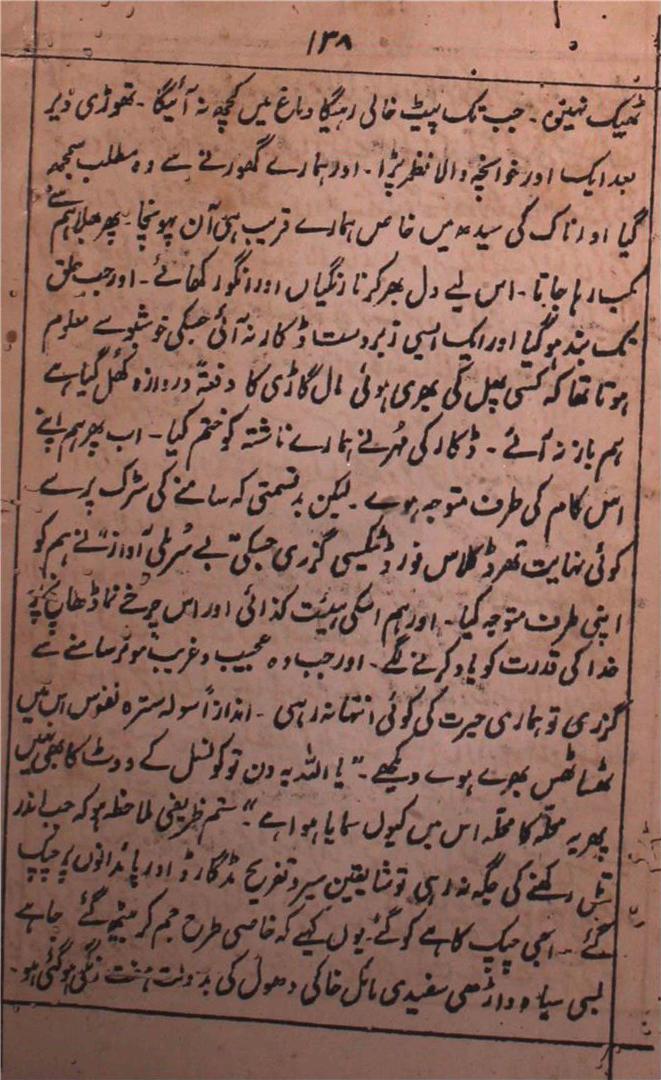 ۱۳۸
ٹھیک نہین۔ جب تک پیٹ خالی رہیگا دماغ میں کچھ نہ آئیگا۔ تھوڑی دیر
بعد ایک اور خوانچہ والا نظر پڑا۔ اور ہمارے گھورنے سے وہ مطلب سمجھ
گیا اور ناک کی سیدھ میں خاص ہمارے قریب ہی آن پہونچا۔ پھر بھلا ہم سے
کب رہا جاتا۔ اس لیے دل بھر کر نارنگیاں اور انگور کھائے۔ اور جب حلق
تک بند ہو گیا اور ایک ایسی زبردست ڈکار نہ آئی جسکی خوشبو سے معلوم
ہوتا تھا کہ کسی پھل کی بھری ہوئی مال گاڑی کا دفعتہً دروازہ کھل گیا ہے
ہم باز نہ آئے۔ ڈکار کی مُہر نے ہمارے ناشتہ کو ختم کیا۔ اب پھر ہم اپنے
اصل کام کی طرف متوجہ ہوے۔ لیکن بدقسمتی کہ سامنے کی سڑک پر سے
کوئی نہایت تھرڈ کلاس فورڈ ٹیکسی گزری جسکی بے سُرلی آواز نے ہم کو
اپنی طرف متوجہ کیا۔ اور ہم اسکی ہیئت کذائی اور اس چرخے نما ڈھانچ پر
خدا کی قدرت کو یاد کرنے لگے۔ اور جب وہ عجیب و غریب موٹر سامنے سے
گزری تو ہماری حیرت کی کوئی انتہا نہ رہی۔ اندازاً سولہ سترہ نفوس اس میں
ٹھساٹھس بھرے ہوے دیکھے۔ "یا اللہ یہ دن تو کونسل کے ووٹ کا بھی نہیں
پھر یہ محلّہ کا محلّہ اس میں کیوں سمایا ہوا ہے"۔ ستم ظریفی ملاحظہ ہو کہ جب اندر
تِل رکھنے کی جگہ نہ رہی تو شایقین سیر و تفریح مڈگارڈ اور پائدانوں پر چپک
گئے۔ اجی چپک کاہے کو گئے یوں کہیے کہ خاصی طرح جم کر بیٹھ گئے چاہے
لمبی سیاہ داڑھی سفیدی مائل خاکی دھول کی بدولت ہفت رنگی ہو گئی ہو۔